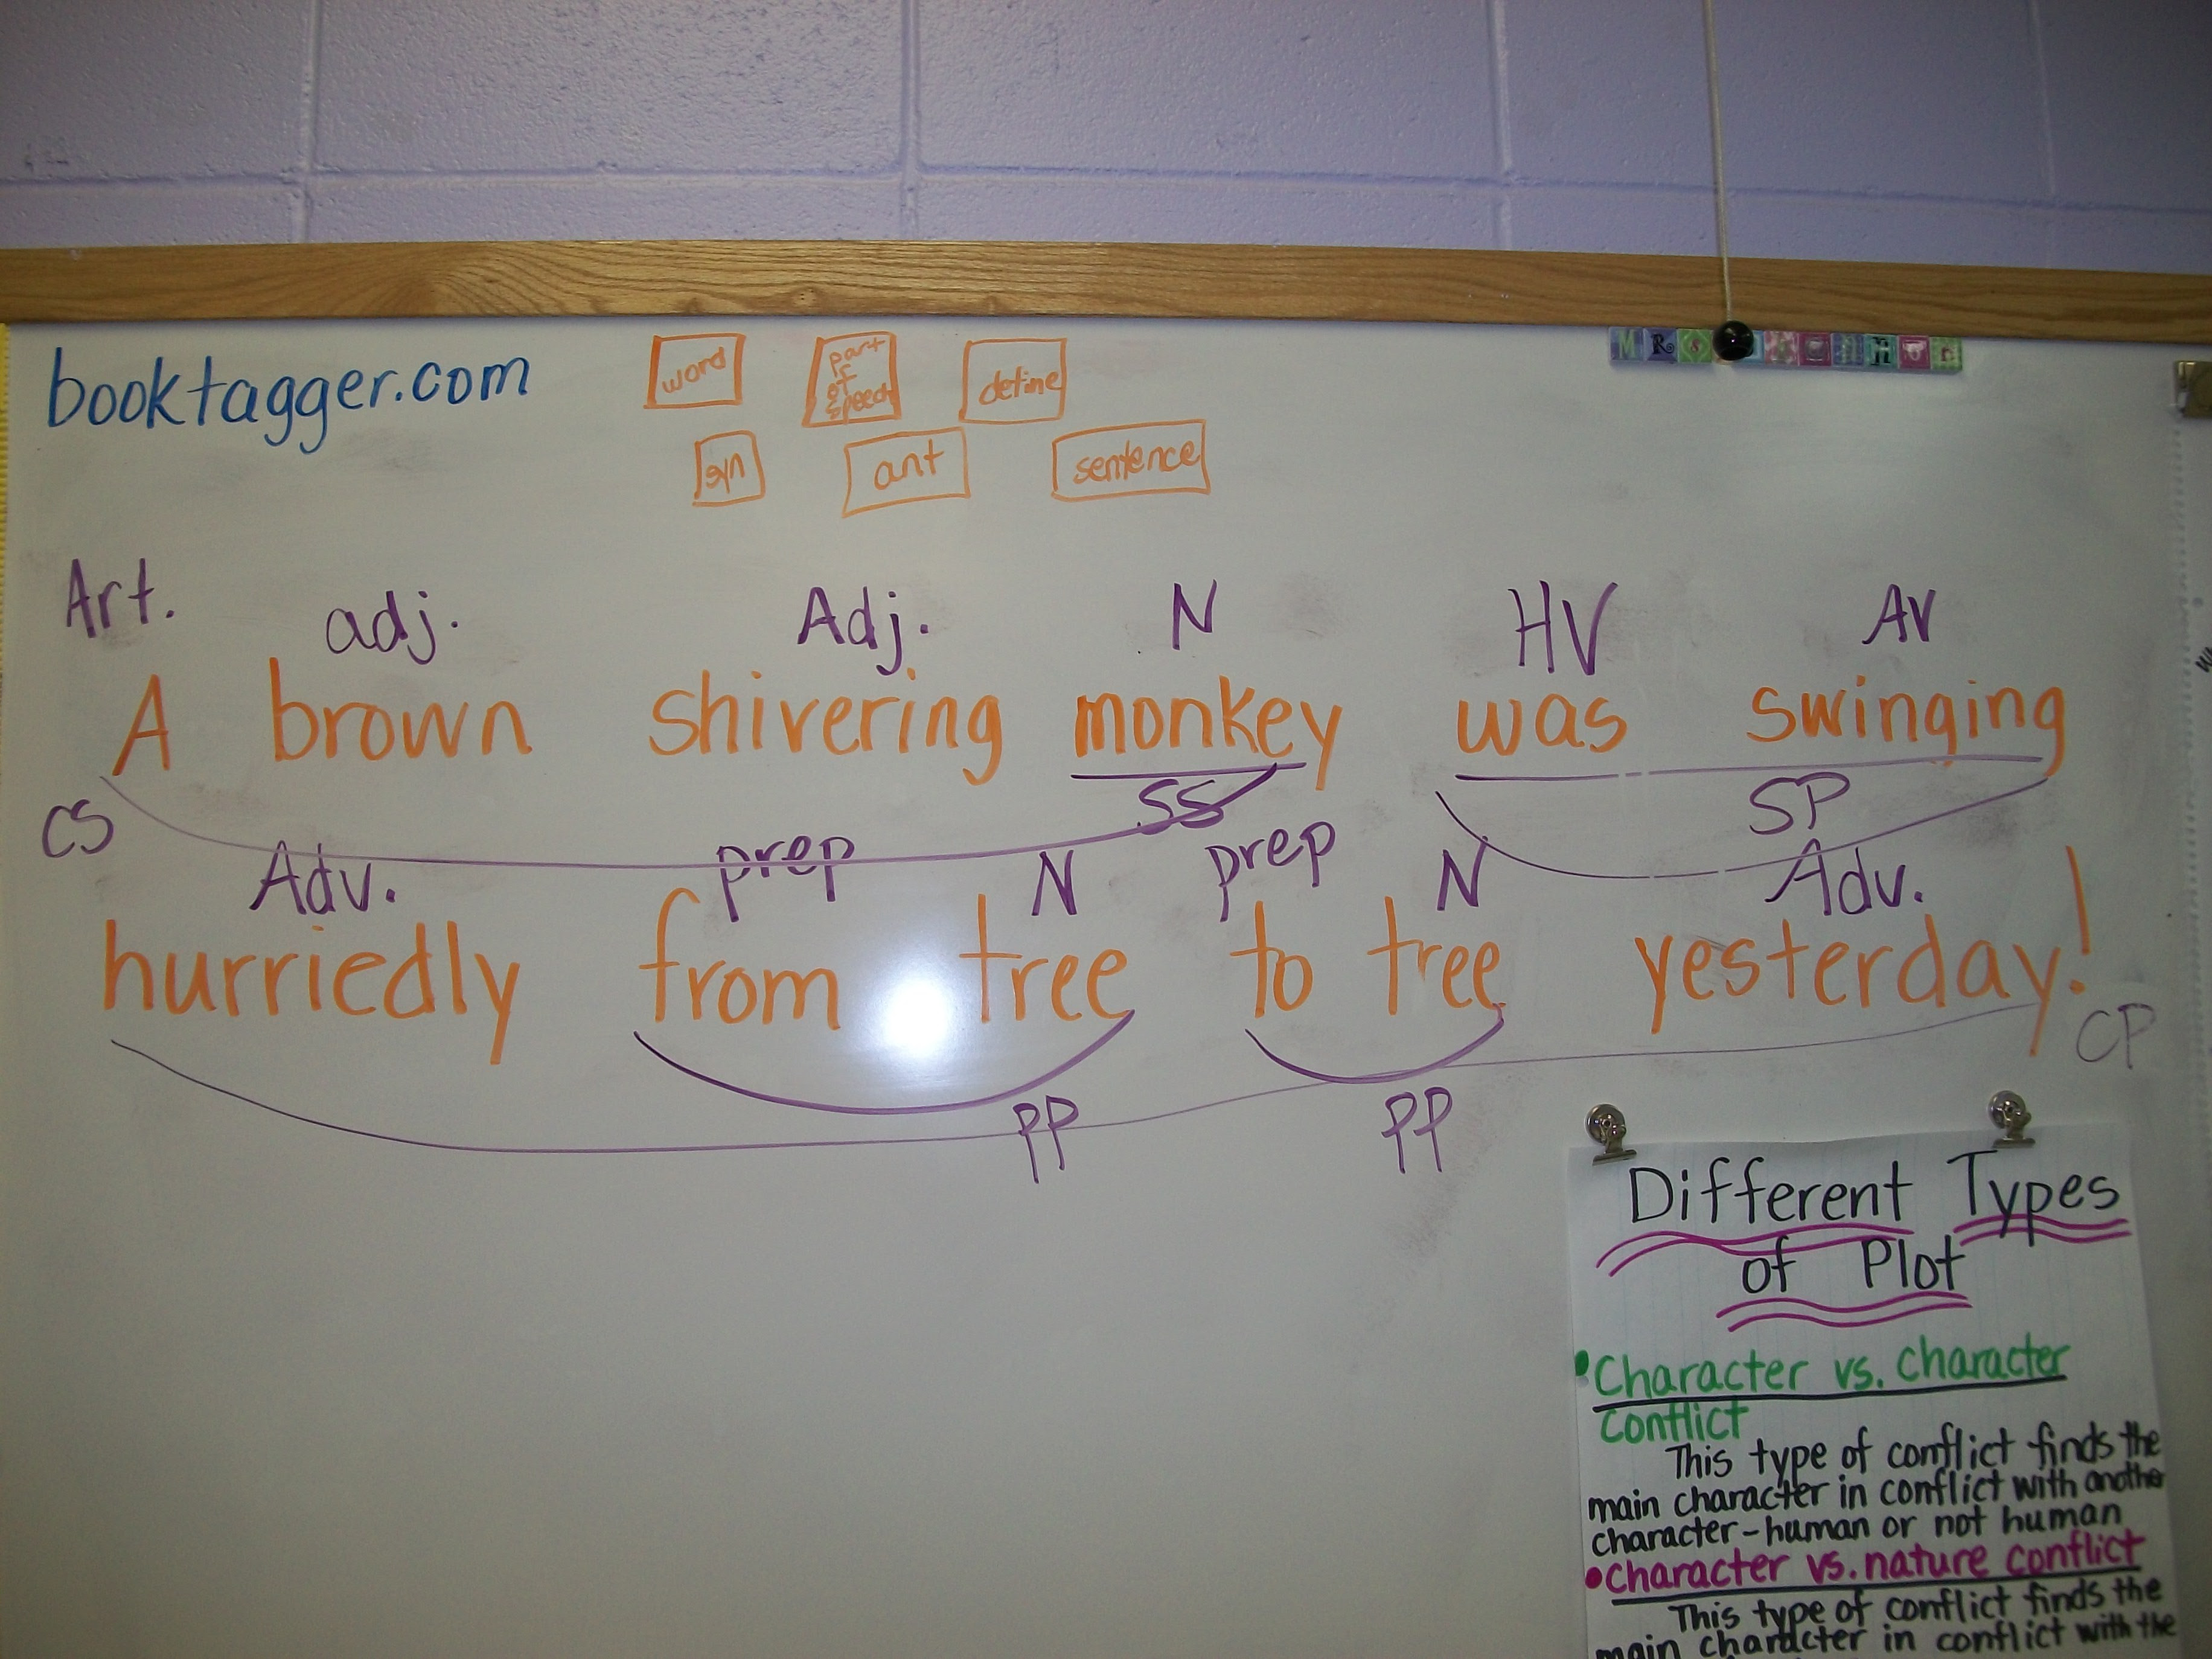 booktagger.com
word
part
of
speech
define
syn
ant
sentence
Art. adj. Adj. N HV AV
A brown shivering monkey was swinging
CS SS SP
Adv. prep N prep N Adv.
hurriedly from tree to tree yesterday!
CP
PP PP
Different Types
of Plot
Character vs. Character
Conflict
This type of conflict finds the
main character in conflict with another
character-human or not human
Character vs. nature conflict
This type of conflict finds the
main character in conflict with the